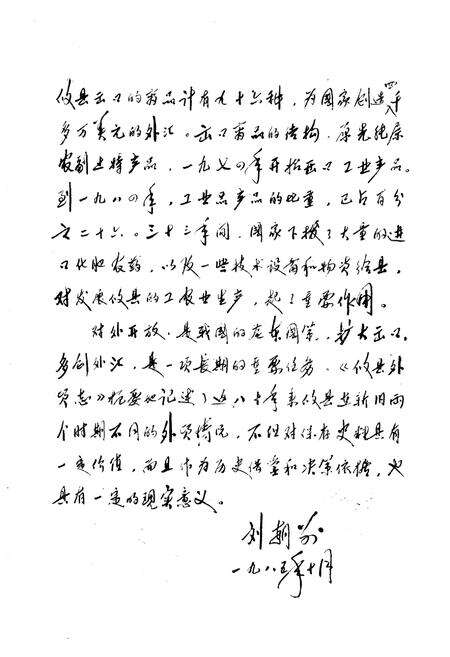 攸县出口的商品计有九十六种，为国家创造四千
多万美元的外汇。出口商品的结构，原先纯属
农副土特产品，一九七四年开始出口工业产品。
到一九八四年，工业品产品的比重，已占百分
之二十六。三十三年间，国家下拨了大量的进
口化肥农药，以及一些技术设备和物资给县，
对发展攸县的工农业生产，起了重要作用。
对外开放，是我国的基本国策，扩大出口，
多创外汇，是一项长期的重要任务。《攸县外
贸志》扼要地记述了近八十年来攸县在新旧两
个时期不同的外贸情况，不但对保存史料具有
一定价值，而且作为历史借鉴和决策依据，也
具有一定的现实意义。
刘朝
一九八五年十月